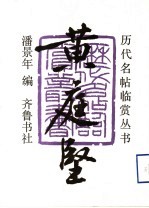 历代名帖临赏丛书
黄庭坚
潘景年 编 齐鲁书社